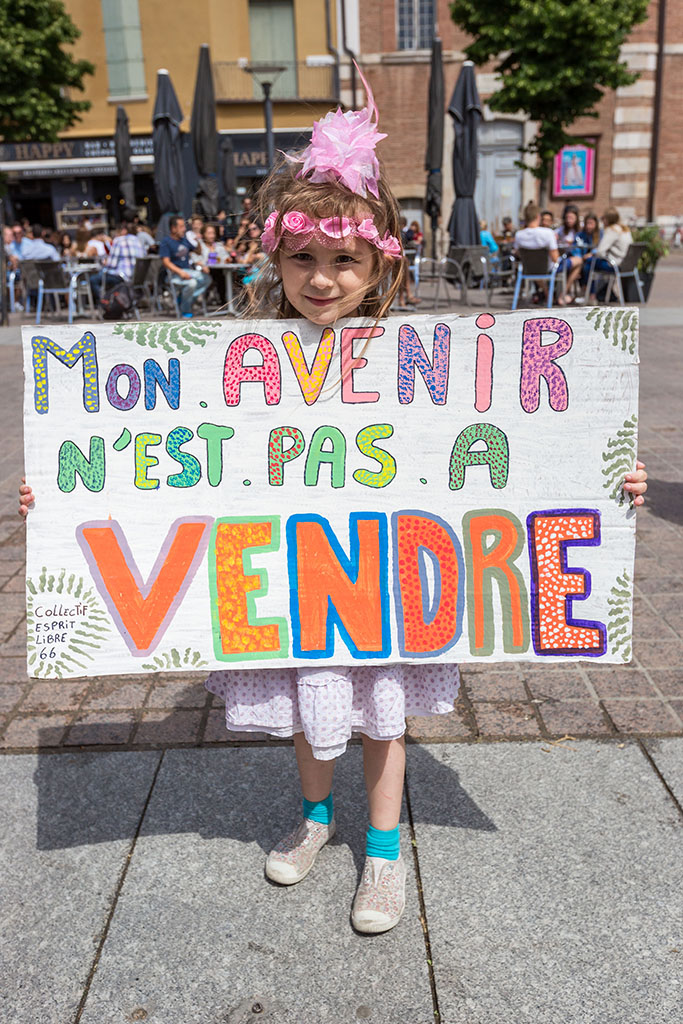 HAPPY
MON. AVENIR
N'EST. PAS. A
VENDRE
COLLECTIF
ESPRIT
LIBRE
66